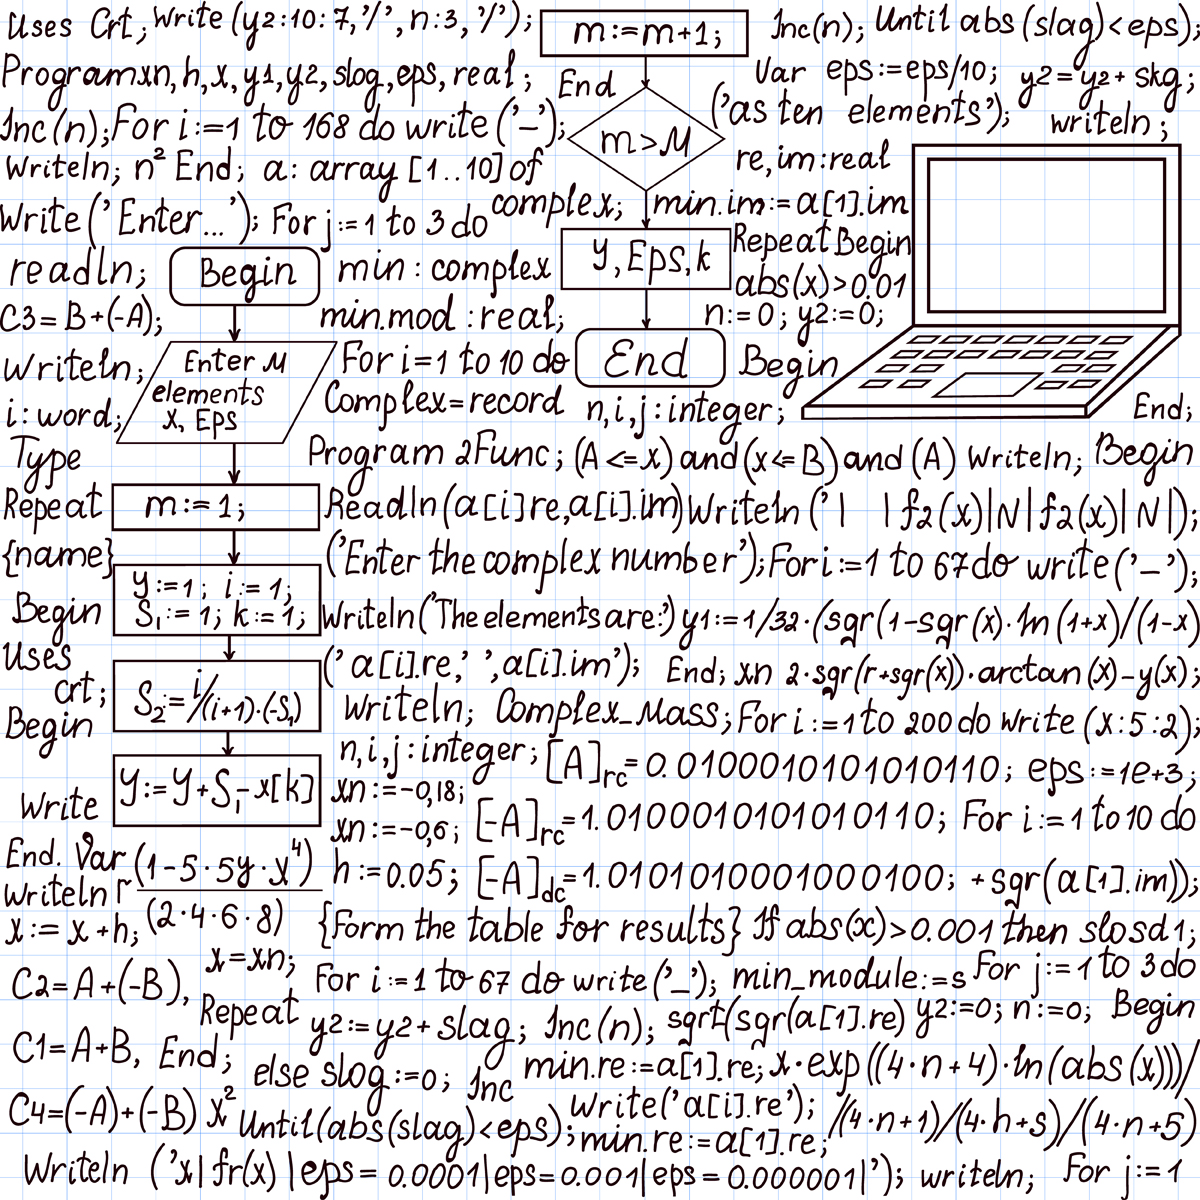 Uses Crt; Write (y2:10:7,'/', n:3, '/'); m:=m+1; Inc(n); Until abs (slag)<eps);
Program xn, h, x, y1, y2, slog, eps, real; End Var eps:=eps/10; y2=y2+ skg;
Inc(n); For i:=1 to 168 do write ('–'); m>M ('as ten elements'); writeln;
Writeln; n² End; a: array [1..10] of re, im:real
Write ('Enter...'); For j:=1 to 3 do complex; min.im:=a[1].im
readln; Begin min: complex y, Eps, k Repeat Begin
abs(x)>0.01
C3=B+(-A); min.mod :real; n:=0; y2:=0;
Writeln; Enter M For i=1 to 10 do End Begin
elements
i: word; x, Eps Complex=record n,i,j:integer; End;
Type Program 2Func; (A<=x) and (x<=B) and (A) Writeln; Begin
Repeat m:=1; Readln(a[i]re,a[i].im) Writeln ('| |f2(x)|N|f2(x)|N|);
{name} ('Enter the complex number'); For i:=1 to 67 do write ('–');
y:=1; i:=1;
Begin S₁:=1; k:=1; Writeln('The elements are:') y1:=1/32·(sgr(1-sgr(x)·ln(1+x)/(1-x)
Uses ('a[i].re,' ',a[i].im'); End; xn 2·sgr(r+sgr(x))·arctan(x)-y(x);
crt; S₂:=i/(i+1)·(-S₁) Writeln; Complex_Mass; For i:=1 to 200 do write (x:5:2);
Begin
n,i,j:integer; [A]rc=0.0100010101010110; eps:=1e+3;
Write y:=y+S₁-x[k] xn:=-0,18;
xn:=-0,6; [-A]rc=1.0100010101010110; For i:=1 to 10 do
End. Var (1-5·5y·x⁴) h:=0.05; [-A]dc=1.0101010001000100; +sgr(a[1].im));
Writeln r
x:= x+h; (2·4·6·8) {Form the table for results} If abs(x)>0.001 then slosd1;
x=xn;
C2=A+(-B), For i:=1 to 67 do write ('_'); min_module:=s For j:=1 to 3 do
Repeat y2:=y2+slag; Inc(n); sqrt(sgr(a[1].re) y2:=0; n:=0; Begin
C1=A+B, End; else slog:=0; Inc min.re:=a[1].re; x·exp((4·n+4)·ln(abs(x)))/
C4=(-A)+(-B) x² Until(abs(slag)<eps); Write('a[i].re'); /(4·n+1)/(4·h+s)/(4·n+5)
min.re:=a[1].re;
Writeln ('x| fr(x) |eps= 0.0001|eps=0.001|eps=0.000001|'); writeln; For j:=1